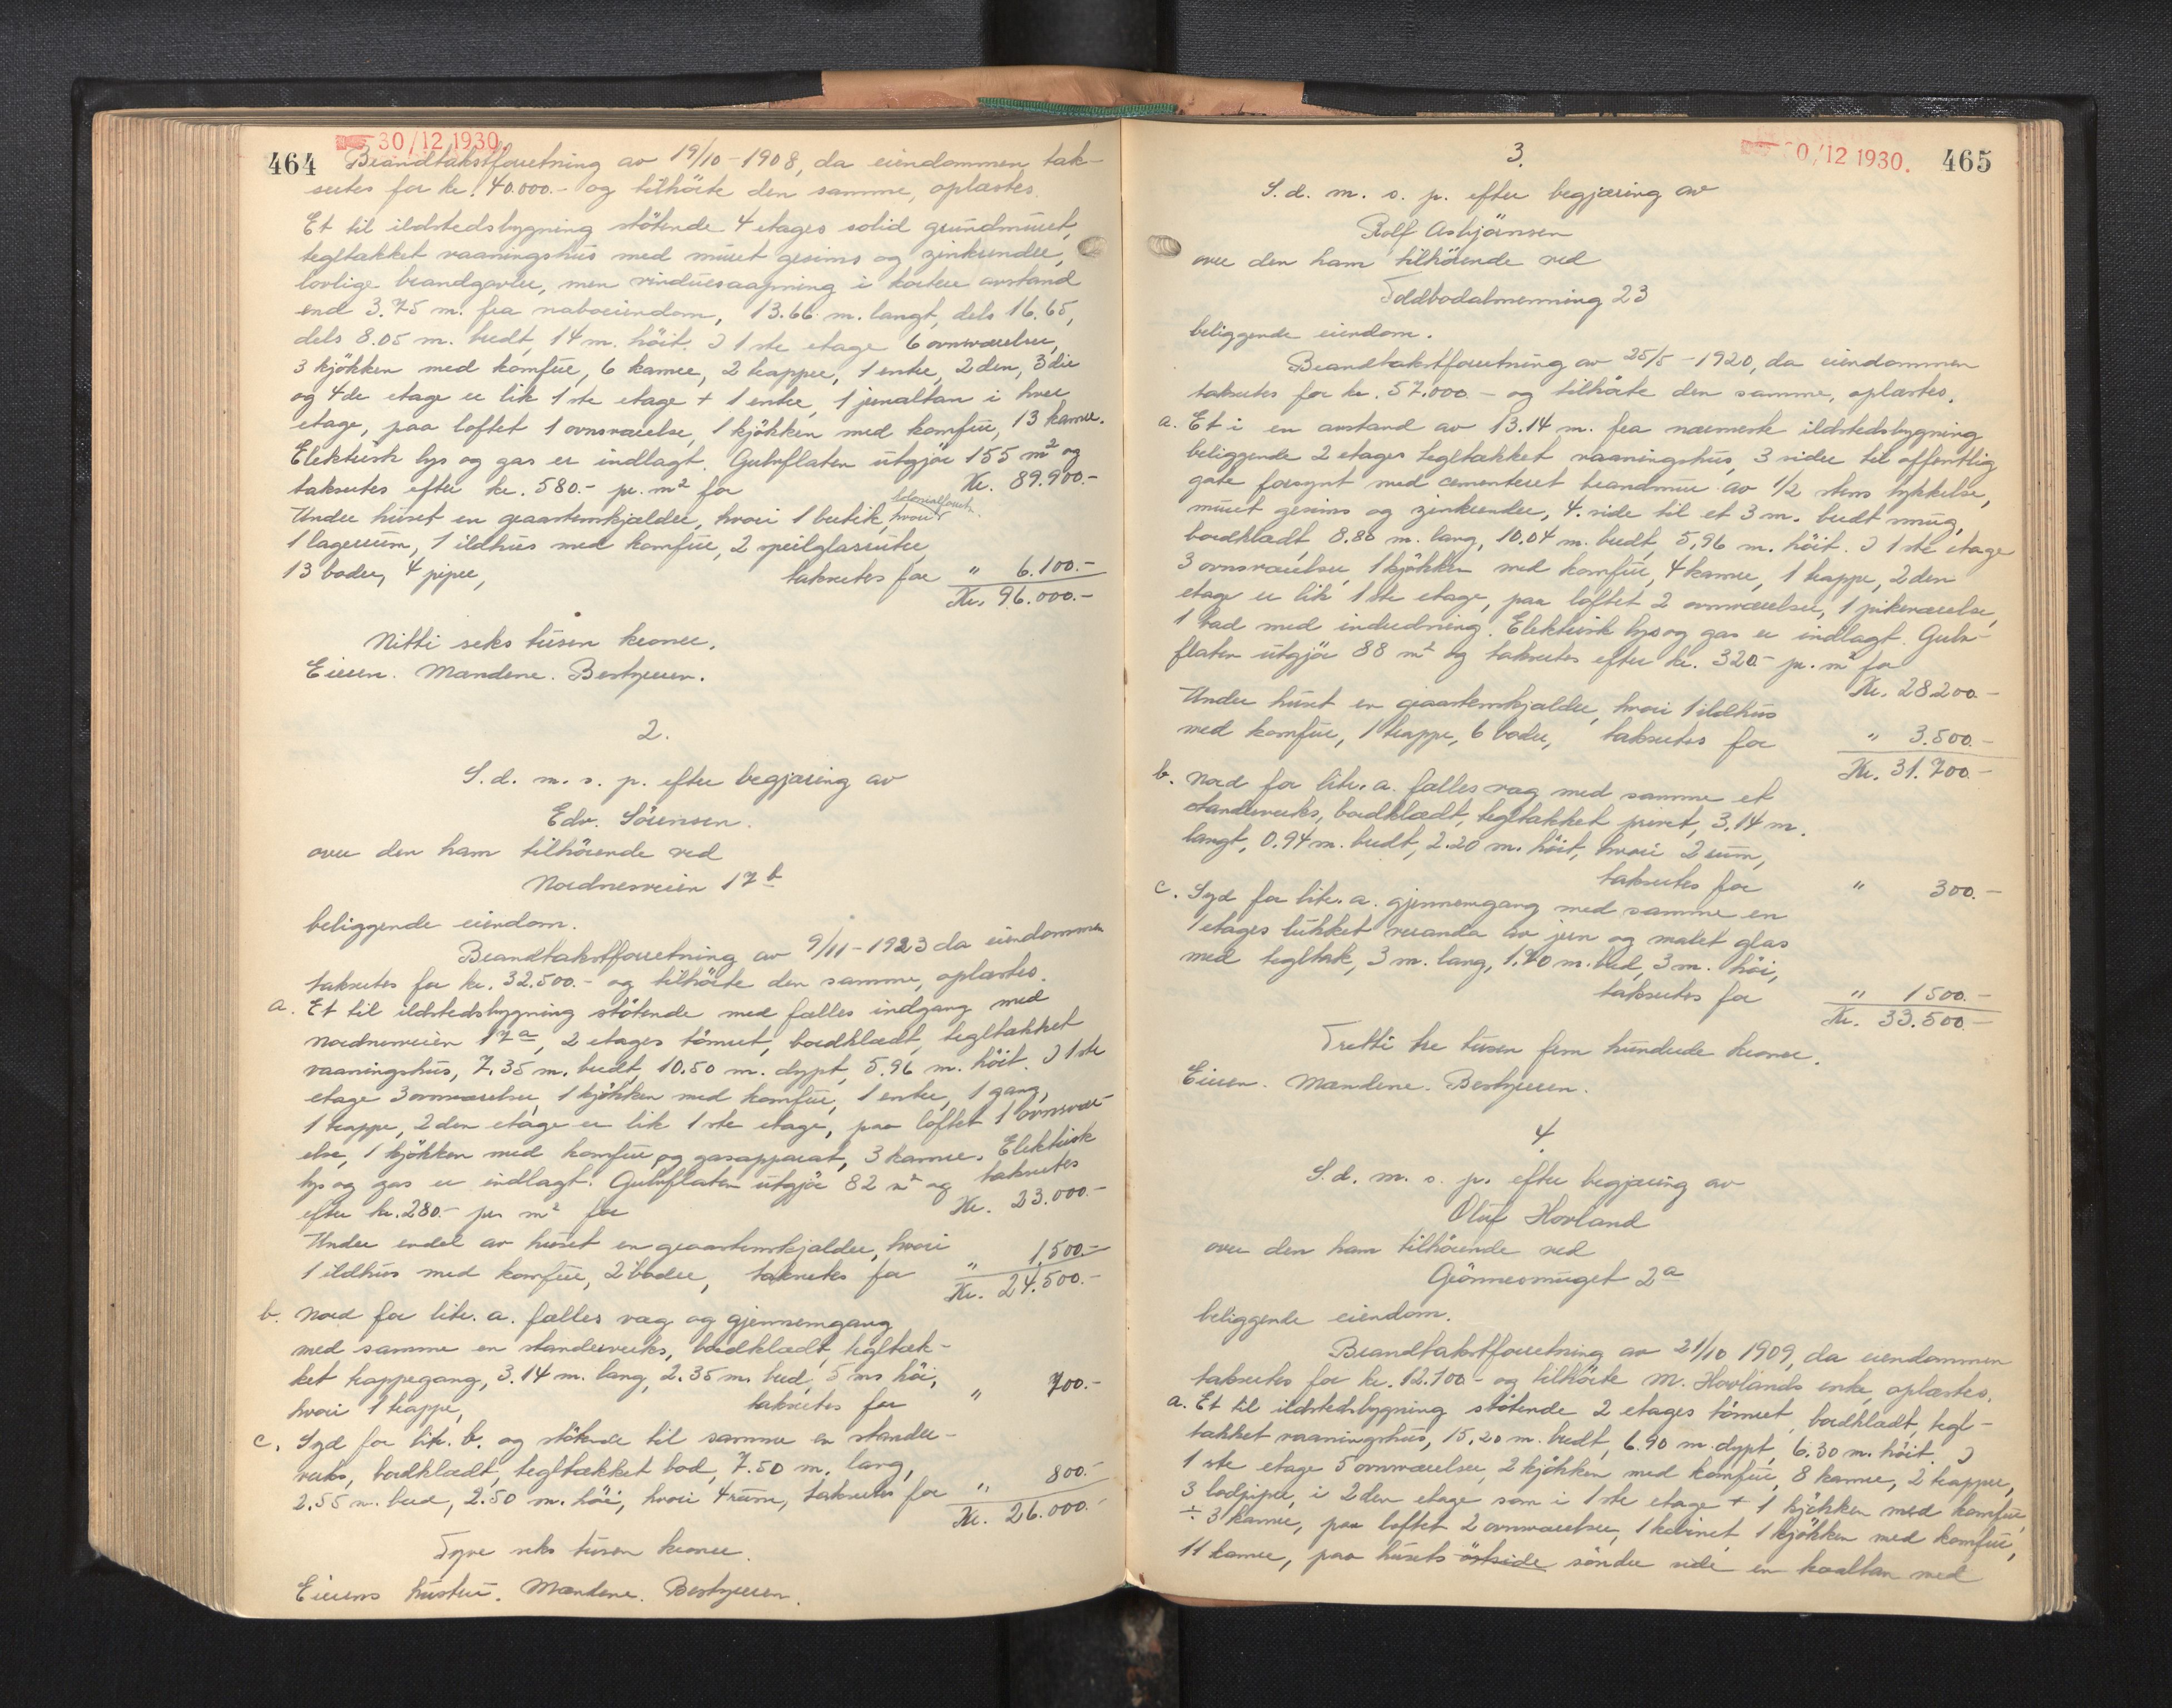 464
30/12 1930.
Brandtakstforretning av 19/10 - 1908, da eiendommen tak-
sertes for kr. 40.000.- og tilhörte den samme, oplæstes.
Et til ildstedsbygning stötende 4 etages solid grundmuret,
tegltækket vaaningshus med muret gesims og zinkrender,
lovlige brandgavler, men vinduesaapning i kortere avstand
end 3.75 m. fra naboeiendom, 13.66 m. langt, dels 16.65,
dels 8.05 m. bredt, 14 m. höit. I 1ste etage 6 ovnsværelser,
3 kjökken med komfur, 6 kamre, 2 trapper, 1 entre, 2den, 3die
og 4de etage er lik 1ste etage + 1 entre, 1 jernaltan i hver
etage, paa loftet 1 ovnsværelse, 1 kjökken med komfur, 13 kamre.
Elektrisk lys og gas er indlagt. Gulvflaten utgjör 155 m² og
takseres efter kr. 580.- pr. m² for Kr. 89.900.-
Under huset en graastenskjælder, hvori 1 butik, hvori
1 lagerrum, 1 ildhus med komfur, 2 speilglasruter,
13 boder, 4 piper, taksertes for " 6.100.-
Kr. 96.000.-
Nitti seks tusen kroner.
Eieren. Mændene. Bestyreren.
2.
S. d. m. s. p. efter begjæring av
Edv. Sörensen.
over den ham tilhörende ved
Nordnesveien 17 b
beliggende eiendom.
Brandtakstforretning av 9/11 - 1923 da eiendommen
taksertes for kr. 32.500.- og tilhörte den samme, oplæstes.
a. Et til ildstedsbygning stötende med fælles indgang med
Nordnesveien 17 a, 2 etages tömret, bordklædt, tegltækket
vaaningshus, 7.35 m. bredt, 10.50 m. dypt, 5.96 m. höit. I 1ste
etage 3 ovnsværelser, 1 kjökken med komfur, 1 entre, 1 gang,
1 trappe, 2den etage er lik 1ste etage, paa loftet 1 ovnsvær-
else, 1 kjökken med komfur og gasapparat, 3 kamre. Elektrisk
lys og gas er indlagt. Gulvflaten utgjör 82 m² og taksertes
efter kr. 280.- pr. m² for Kr. 23.000.-
Under endel av huset en graastenskjælder, hvori
1 ildhus med komfur, 2 boder, taksertes for " 1.500.-
Kr. 24.500.-
b. Nord for litr. a. fælles væg og gjennemgang
med samme en standerverks, bordklædt, tegltæk-
ket trappegang, 3.14 m. lang, 2.35 m. bred, 5 m. höi,
hvori 1 trappe, taksertes for " 700.-
c. Syd for litr. b. og stötende til samme en stander-
verks, bordklædt, tegltækket bod, 7.50 m. lang,
2.55 m. bred, 2.50 m. höi, hvori 4 rum, taksertes for " 800.-
Kr. 26.000.-
Tyve seks tusen kroner.
Eierens hustru. Mændene. Bestyreren.
0/12 1930.
465
3.
S. d. m. s. p. efter begjæring av
Rolf Asbjörnsen
over den ham tilhörende ved
Toldbodalmenning 23
beliggende eiendom.
Brandtakstforretning av 25/5 - 1920, da eiendommen
taksertes for kr. 57.000.- og tilhörte den samme, oplæstes.
a. Et i en avstand av 13.14 m. fra nærmeste ildstedsbygning
beliggende 2 etages tegltækket vaaningshus, 3 sider til offentlig
gate forsynt med cementeret brandmur av 1/2 stens tykkelse,
muret gesims og zinkrender, 4. side til et 3 m. bredt smug,
bordklædt, 8.80 m. lang, 10.04 m. bredt, 5.96 m. höit. I 1ste etage
3 ovnsværelser, 1 kjökken med komfur, 4 kamre, 1 trappe, 2den
etage er lik 1ste etage, paa loftet 2 ovnsværelser, 1 pikeværelse,
1 bad med indredning. Elektrisk lys og gas er indlagt. Gulv-
flaten utgjör 88 m² og taksertes efter kr. 320.- pr. m² for
Kr. 28.200.-
Under huset en graastenskjælder, hvori 1 ildhus
med komfur, 1 trappe, 6 boder, taksertes for " 3.500.-
Kr. 31.700.-
b. Nord for litr. a. fælles væg med samme et
standerverks, bordklædt, tegltækket privet, 3.14 m.
langt, 0.94 m. bredt, 2.20 m. höit, hvori 2 rum,
taksertes for " 300.-
c. Syd for litr. a. gjennemgang med samme en
1 etages lukket veranda av jern og malet glas
med tegltak, 3 m. lang, 1.70 m. bred, 3 m. höi,
taksertes for " 1500.-
Kr. 33.500.-
Tretti tre tusen fem hundrede kroner.
Eieren. Mændene. Bestyreren.
4.
S. d. m. s. p. efter begjæring av
Oluf Hovland
over den ham tilhörende ved
Grönnesmuget 2 a
beliggende eiendom.
Brandtakstforretning av 21/10 1909, da eiendommen
taksertes for kr. 12.100.- og tilhörte M. Hovlands enke, oplæstes.
a. Et til ildstedsbygning stötende 2 etages tömret, bordklædt, tegl-
tækket vaaningshus, 15.20 m. bredt, 6.90 m. dypt, 6.30 m. höit. I
1ste etage 5 ovnsværelser, 2 kjökken med komfur, 8 kamre, 2 trapper,
3 lodpiper, i 2den etage som i 1ste etage + 1 kjökken med komfur,
÷ 3 kamre, paa loftet 2 ovnsværelser, 1 kabinet, 1 kjökken med komfur,
11 kamre, paa husets östside söndre side en kvaltan med